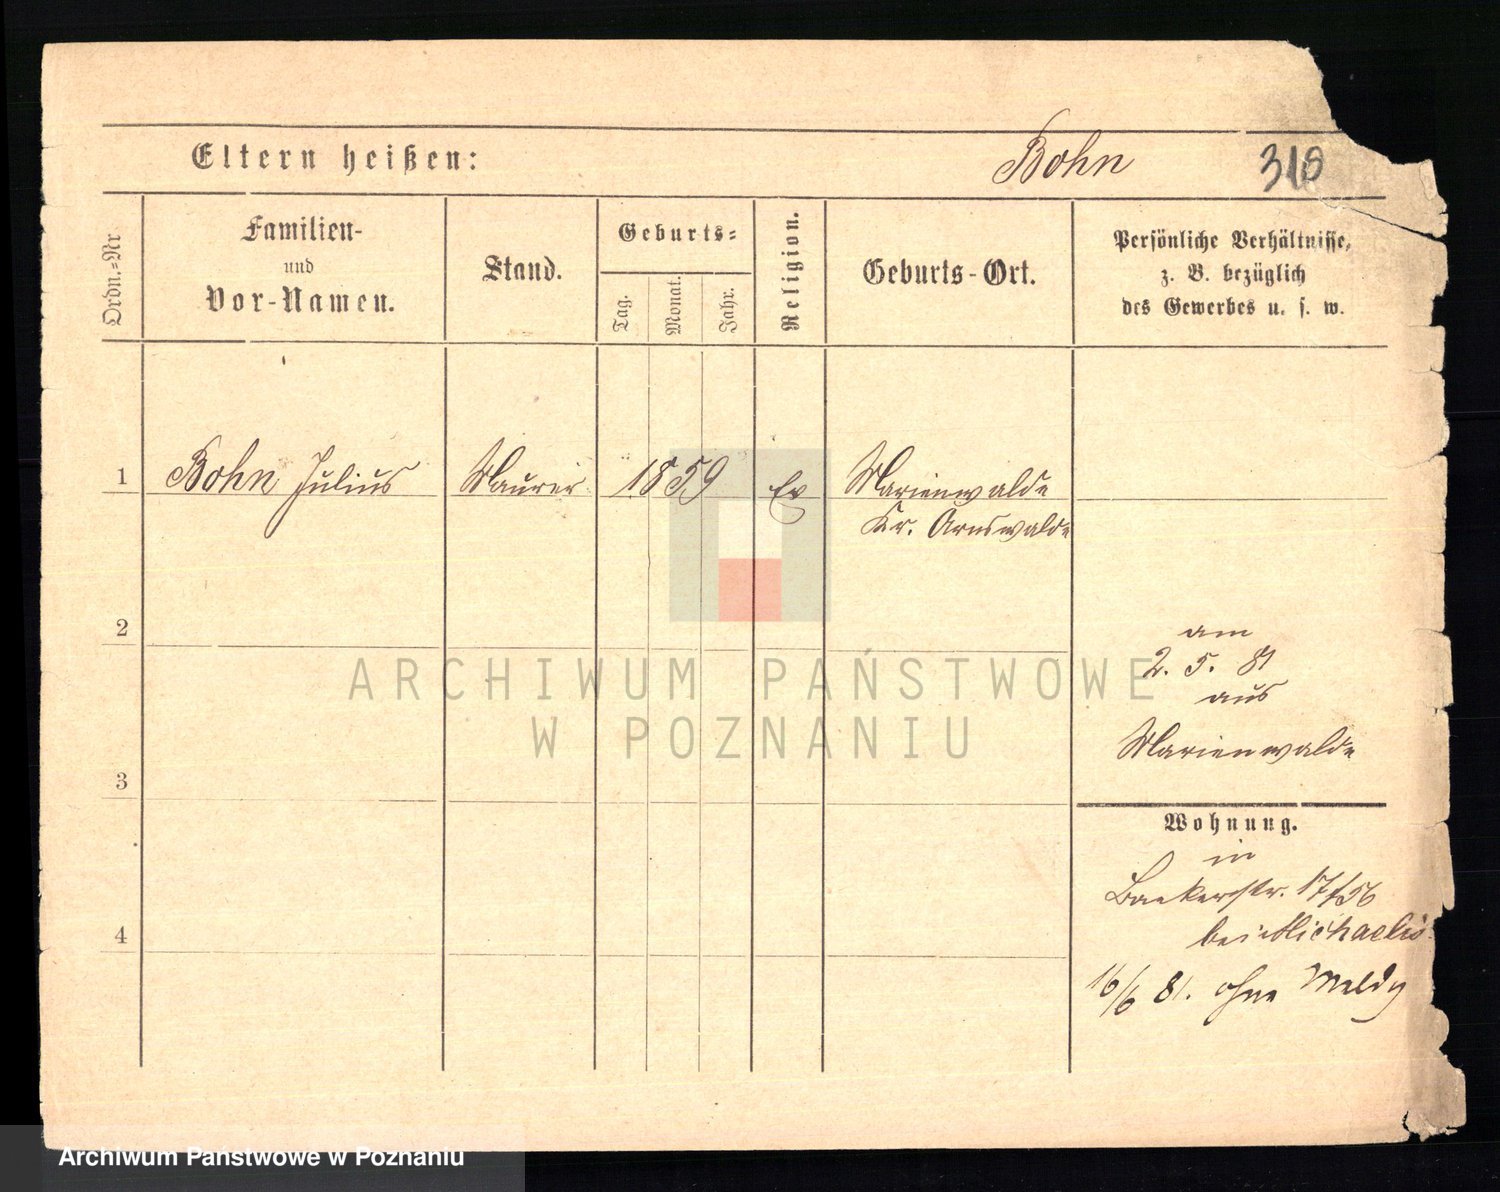 Eltern heißen:
Bohn
318
Ordn.=Nr
Familien-
und
Vor-Namen.
Stand.
Geburts=
Tag.
Monat.
Jahr.
Religion.
Geburts-Ort.
Persönliche Verhältnisse,
z. B. bezüglich
des Gewerbes u. s. w.
1
Bohn Julius
Maurer
1859
Ev
Marienwalde
Kr. Arnswalde
2
am
2. 5. 81
aus
Marienwalde
3
Wohnung.
in
Baekerstr. 17/56
bei Michaelis
4
16/6 81. ohne Meldg
ARCHIWUM PAŃSTWOWE
W POZNANIU
Archiwum Państwowe w Poznaniu